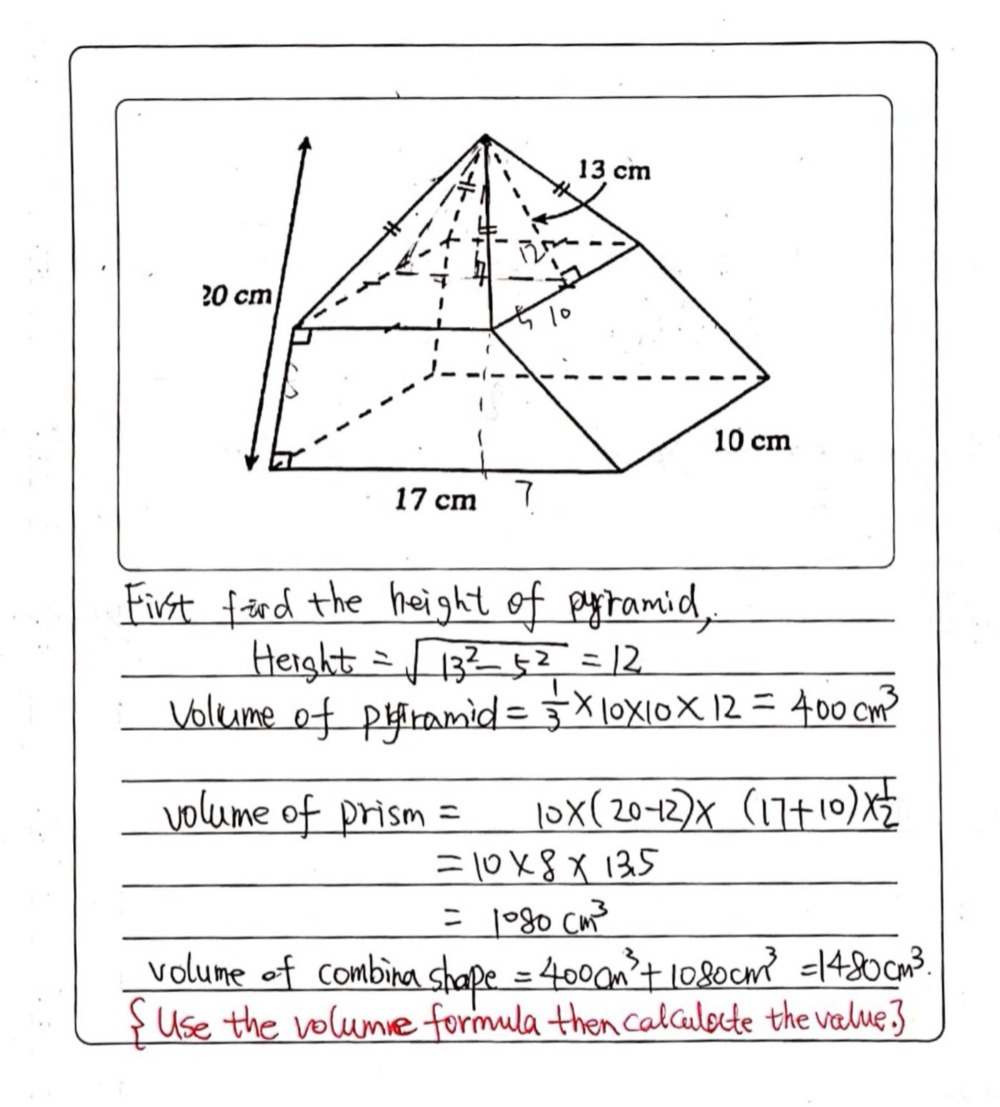 13 cm
20 cm
12
5 10
8
10 cm
17 cm 7
First find the height of pyramid,
Height = √13²-5² = 12
Volume of pyramid = 1/3 × 10×10 × 12 = 400 cm³
volume of prism = 10×(20-12)× (17+10)×1/2
= 10 × 8 × 13.5
= 1080 cm³
volume of combina shape = 400cm³ + 1080cm³ = 1480cm³.
{Use the volume formula then calculate the value.}